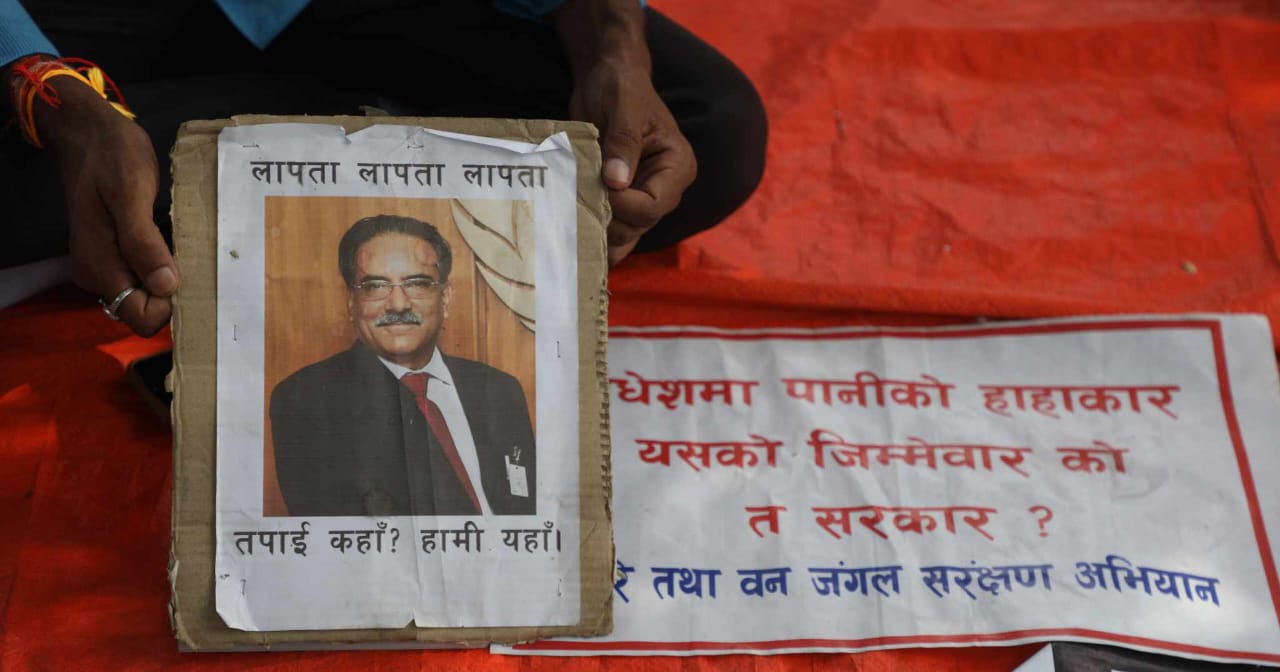 लापता लापता लापता
तपाई कहाँ? हामी यहाँ।
धेशमा पानीको हाहाकार
यसको जिम्मेवार को
त सरकार ?
रे तथा वन जंगल सरंक्षण अभियान